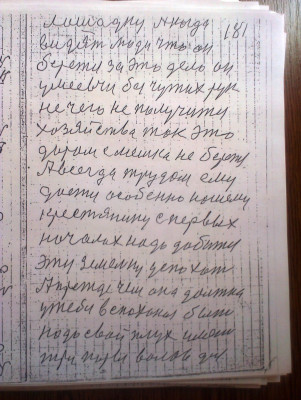 лошадку Акогда 181
видят люди что он
берети за это дело он
умеевчи без чужих рук
не чего не получити
хозяйства ток это
даром смешка не берти
Авсегда трудом ему
доств особенно нашему
крестянину спервых
началах надо добыти
эту землину испохат
Апрежде чем она должна
уже бы вспохоно быт
надо свой плух имет
три пары волов да